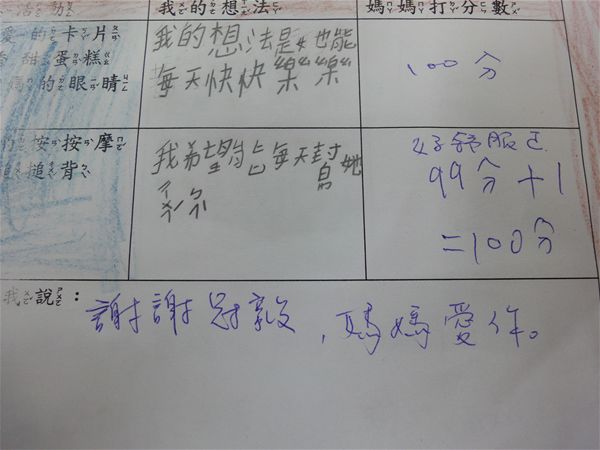 活動
我的想法
媽媽打分數
愛的卡片
甜蛋糕
媽的眼睛
我的想法是她也能
每天快快樂樂
100分
按按摩
搥背
我希望 每天 她
好舒服
99分+1
=100分
我說：
謝謝 ，媽媽愛你。